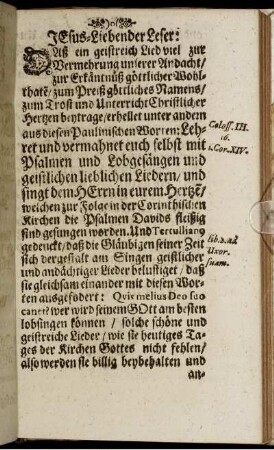 JEsus-Liebender Leser:
DAß ein geistreich Lied viel zur
Vermehrung unserer Andacht/
zur Erkäntnüß göttlicher Wohl-
thatē/ zum Preiß göttliches Namens/
zum Trost und Unterricht Christlicher
Hertzen beytrage/ erhellet unter andern
aus diesen Paulinischen Worten: Leh-
ret und vermahnet euch selbst mit
Psalmen und Lobgesängen und
geistlichen lieblichen Liedern/ und
singt dem HErrn in eurem Hertzē/
welchen zur Folge in der Corinthischen
Kirchen die Psalmen Davids fleißig
sind gesungen worden. Und Tertullianꝰ
gedenckt/ daß die Gläubigen seiner Zeit
sich dergestalt am Singen geistlicher
und andächtiger Lieder belustiget/ daß
sie gleichsam einander mit diesen Wor-
ten ausgefodert: Quis melius Deo suo
caneret? wer wird seinem GOtt am besten
lobsingen können / solche schöne und
geistreiche Lieder/ wie sie heutiges Ta-
ges der Kirchen Gottes nicht fehlen/
also werden sie billig beybehalten und
an-
Coloss. III.
16.
1. Cor. XIV.
lib. 2. ad
Uxor.
suam.